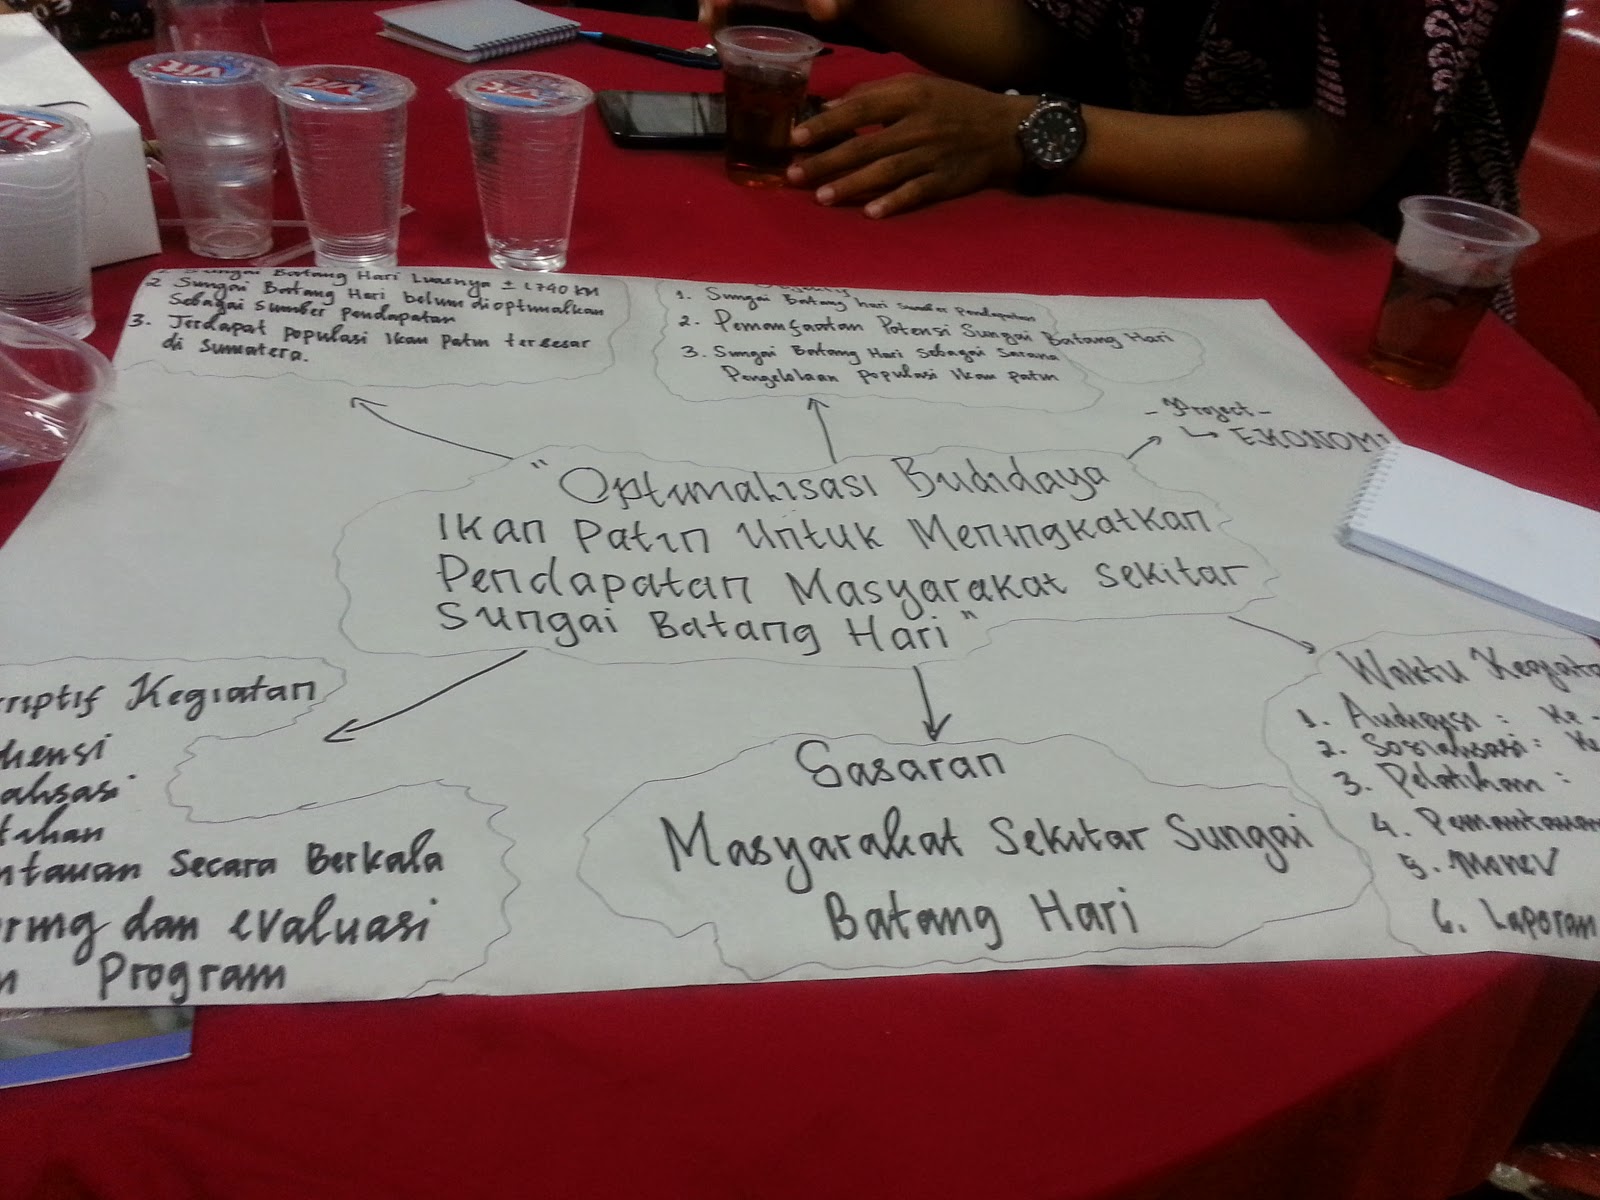 VIT
VIT
1. Sungai Batang Hari Luasnya ± 1.740 KM
2 Sungai Batang Hari belum dioptimalkan
Sebagai sumber pendapatan
3. Terdapat populasi Ikan patin terbesar
di Sumatera.
1. Sungai Batang hari sumber pendapatan
2. Pemanfaatan Potensi Sungai Batang Hari
3. Sungai Batang Hari Sebagai Sarana
Pengelolaan populasi Ikan patin
- Project -
↳ EKONOMI
"Optimalisasi Budidaya
Ikan Patin Untuk Meningkatkan
Pendapatan Masyarakat sekitar
Sungai Batang Hari"
riptif Kegiatan
diensi
alisasi
tihan
ntauan Secara Berkala
oring dan evaluasi
n Program
Sasaran
Masyarakat Sekitar Sungai
Batang Hari
Waktu Kegiata
1. Audiensi : Ke-
2. Sosialisasi : Ke
3. Pelatihan :
4. Pemantauan
5. Monev
6. Laporan